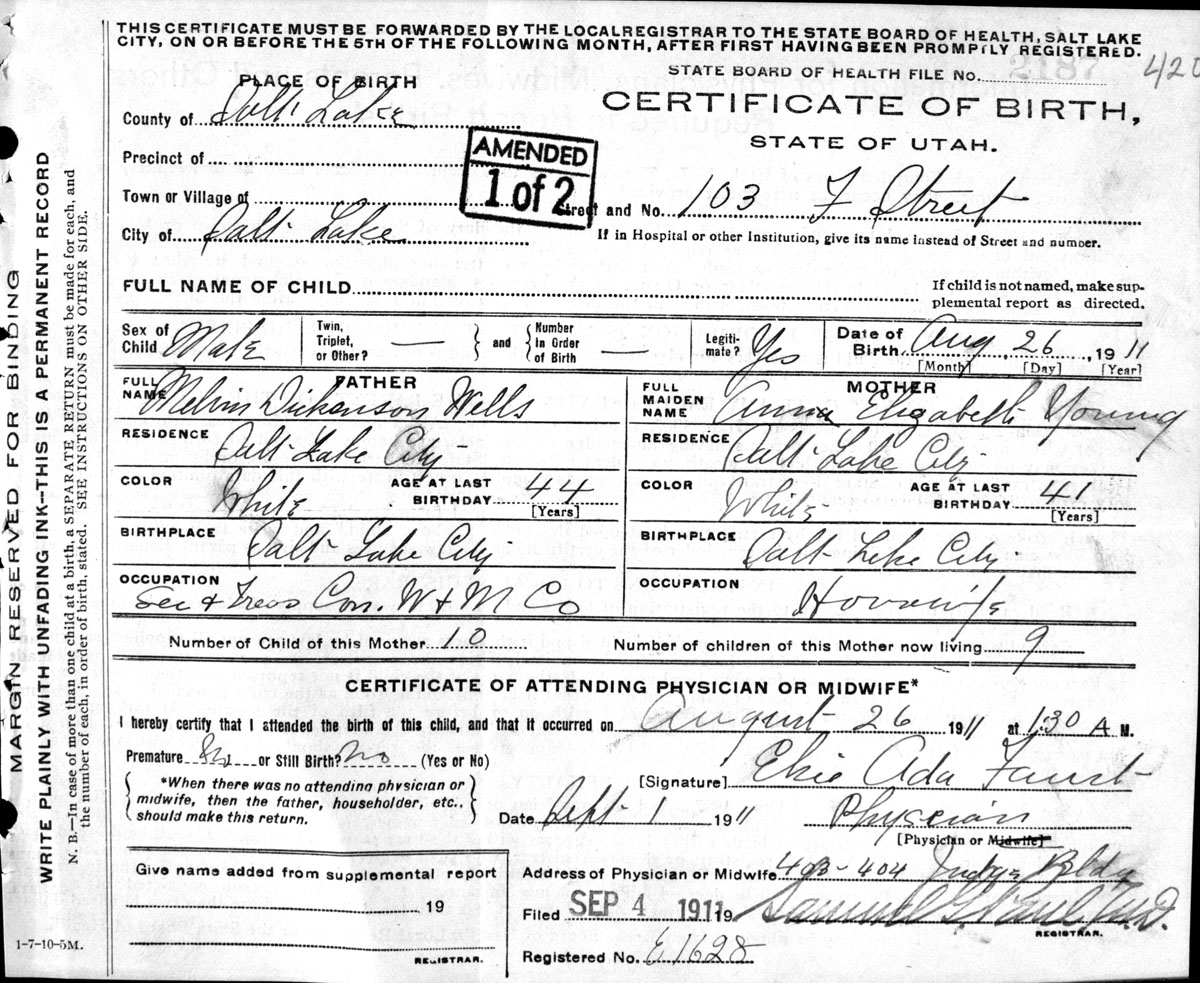 THIS CERTIFICATE MUST BE FORWARDED BY THE LOCAL REGISTRAR TO THE STATE BOARD OF HEALTH, SALT LAKE
CITY, ON OR BEFORE THE 5TH OF THE FOLLOWING MONTH, AFTER FIRST HAVING BEEN PROMPTLY REGISTERED.
STATE BOARD OF HEALTH FILE No. 2187 420
PLACE OF BIRTH
CERTIFICATE OF BIRTH,
STATE OF UTAH.
County of Salt Lake
AMENDED
1 of 2
Precinct of
Town or Village of
Street and No. 103 F Street
City of Salt Lake
If in Hospital or other Institution, give its name instead of Street and number.
FULL NAME OF CHILD
If child is not named, make sup-
plemental report as directed.
Sex of Child Male
Twin, Triplet, or Other? —
and
Number in Order of Birth —
Legiti-mate? Yes
Date of Birth Aug 26, 1911
[Month] [Day] [Year]
FATHER
FULL NAME Melvin Dickenson Wells
MOTHER
FULL MAIDEN NAME Anna Elizabeth Young
RESIDENCE Salt Lake City
RESIDENCE Salt Lake City
COLOR White AGE AT LAST BIRTHDAY 44 [Years]
COLOR White AGE AT LAST BIRTHDAY 41 [Years]
BIRTHPLACE Salt Lake City
BIRTHPLACE Salt Lake City
OCCUPATION Sec & Treas Con. W & M Co
OCCUPATION Housewife
Number of Child of this Mother 10
Number of children of this Mother now living 9
CERTIFICATE OF ATTENDING PHYSICIAN OR MIDWIFE*
I hereby certify that I attended the birth of this child, and that it occurred on August 26 1911 at 1:30 A M.
Premature No or Still Birth? No (Yes or No)
*When there was no attending physician or
midwife, then the father, householder, etc.,
should make this return.
[Signature] Elsie Ada Faust
Date Sept 1 1911 Physician
[Physician or Midwife]
Give name added from supplemental report
19
REGISTRAR.
Address of Physician or Midwife 403-404 Judge Bldg
Filed SEP 4 1911 19
Samuel G. Paul M.D.
REGISTRAR.
Registered No. 61628
1-7-10-5M.
MARGIN RESERVED FOR BINDING
WRITE PLAINLY WITH UNFADING INK—THIS IS A PERMANENT RECORD
N. B.—In case of more than one child at birth a SEPARATE RETURN must be made for each, and
the number of each, in order of birth, stated. SEE INSTRUCTIONS ON OTHER SIDE.